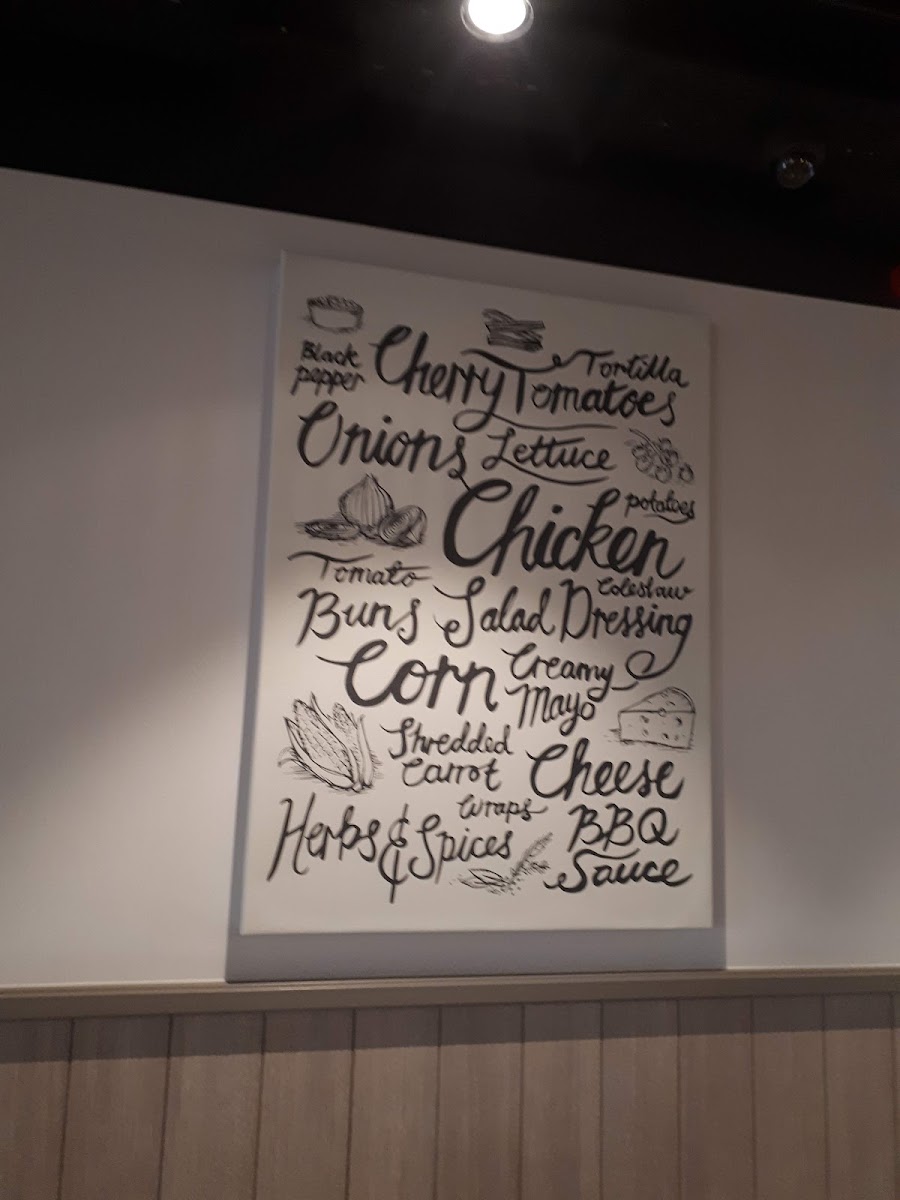 Black
pepper
Cherry Tomatoes
Tortilla
Onions
Lettuce
Chicken
potatoes
Tomato
Coleslaw
Buns Salad Dressing
Corn
Creamy
Mayo
Shredded
Carrot
Cheese
Wraps
Herbs & Spices
BBQ
Sauce